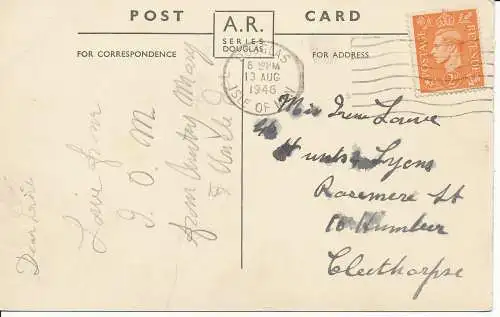 POST CARD
A.R.
SERIES
DOUGLAS
FOR CORRESPONDENCE
FOR ADDRESS
DOUGLAS
13 AUG
1946
ISLE OF MAN
POSTAGE
REVENUE
2D
Dear Louie
Love from
I. O. M
from Aunty Mary
& Uncle J
Miss Irene Lowe
c/o
Hunts Lyons
Rosemere St
10 Humber
Cleethorpse